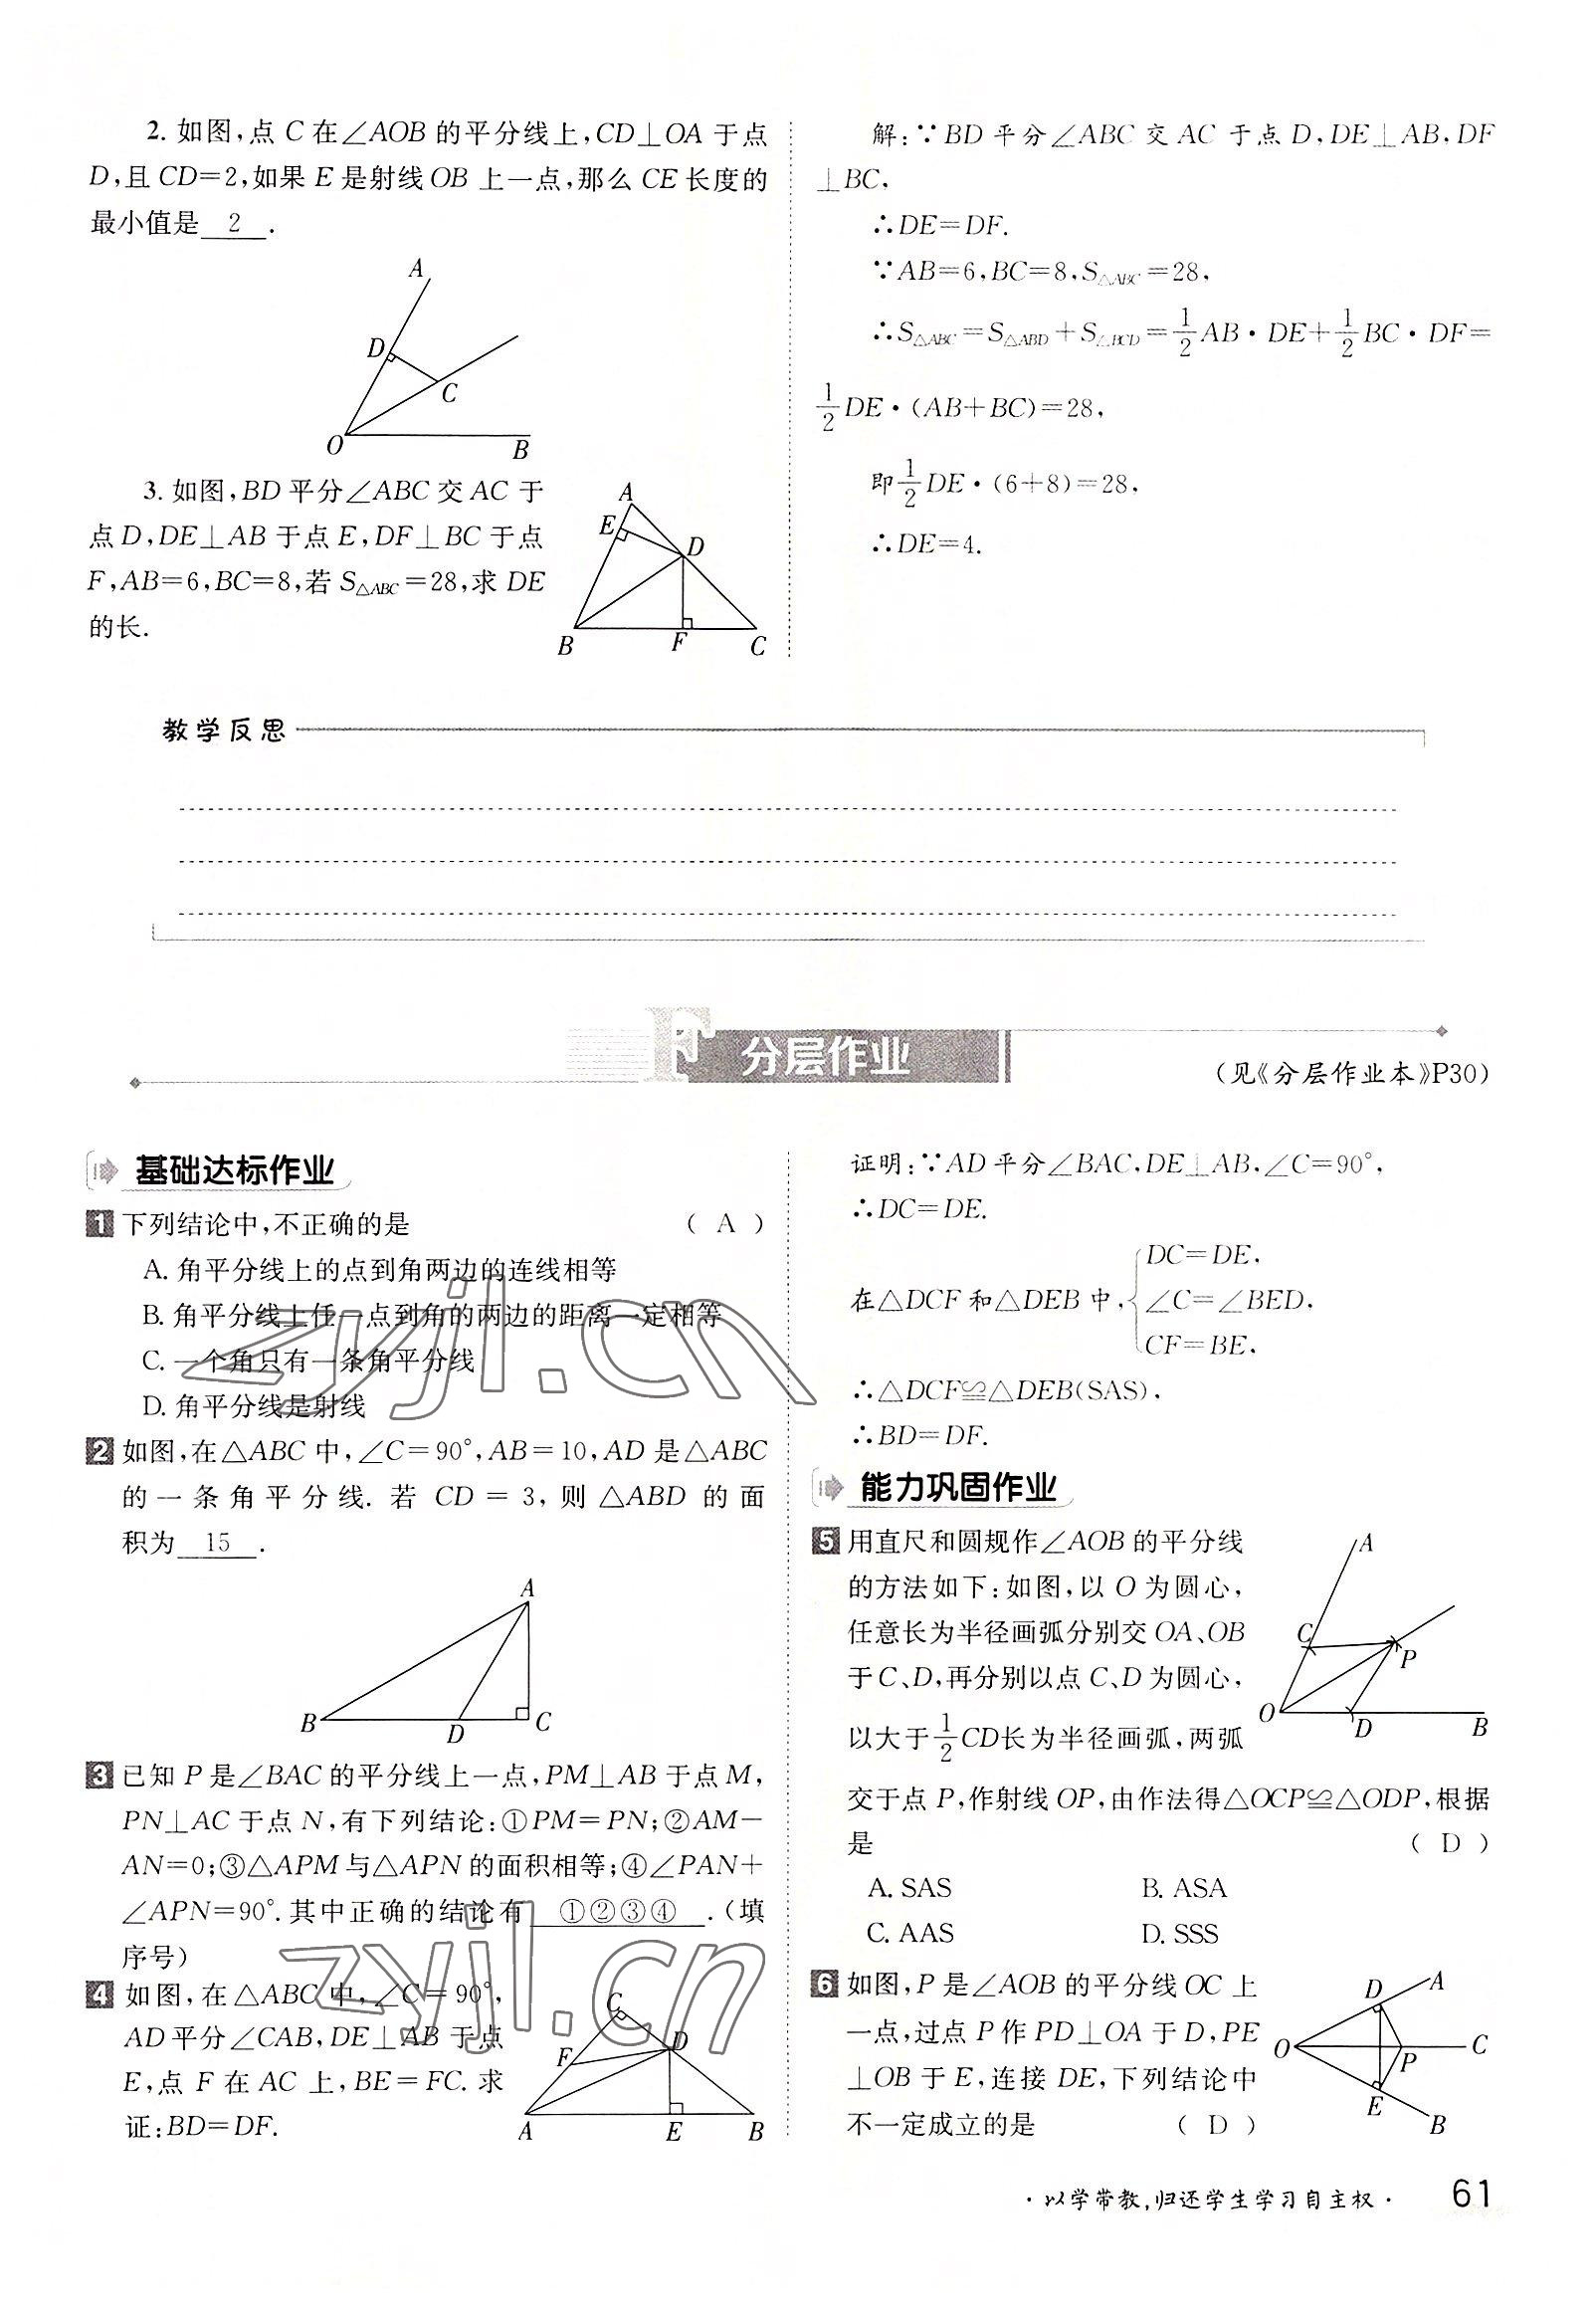 2. 如图,点 C 在∠AOB 的平分线上,CD⊥OA 于点
D,且 CD=2,如果 E 是射线 OB 上一点,那么 CE 长度的
最小值是 2 .
A
D
C
O
B
3. 如图,BD 平分∠ABC 交 AC 于
点 D,DE⊥AB 于点 E,DF⊥BC 于点
F,AB=6,BC=8,若 S△ABC=28,求 DE
的长.
A
E
D
B
F
C
解:∵BD 平分∠ABC 交 AC 于点 D,DE⊥AB,DF
⊥BC,
∴DE=DF.
∵AB=6,BC=8,S△ABC=28,
∴S△ABC=S△ABD+S△BCD=1/2AB·DE+1/2BC·DF=
1/2DE·(AB+BC)=28,
即1/2DE·(6+8)=28,
∴DE=4.
教学反思
F 分层作业
(见《分层作业本》P30)
基础达标作业
1 下列结论中,不正确的是 ( A )
A. 角平分线上的点到角两边的连线相等
B. 角平分线上任一点到角的两边的距离一定相等
C. 一个角只有一条角平分线
D. 角平分线是射线
2 如图,在△ABC 中,∠C=90°,AB=10,AD 是△ABC
的一条角平分线. 若 CD=3,则△ABD 的面
积为 15 .
A
B
D
C
3 已知 P 是∠BAC 的平分线上一点,PM⊥AB 于点 M,
PN⊥AC 于点 N,有下列结论:①PM=PN;②AM-
AN=0;③△APM 与△APN 的面积相等;④∠PAN+
∠APN=90°.其中正确的结论有 ①②③④ .(填
序号)
4 如图,在△ABC 中,∠C=90°,
AD 平分∠CAB,DE⊥AB 于点
E,点 F 在 AC 上,BE=FC. 求
证:BD=DF.
C
F
D
A
E
B
证明:∵AD 平分∠BAC,DE⊥AB,∠C=90°,
∴DC=DE.
DC=DE,
在△DCF 和△DEB 中, ∠C=∠BED,
CF=BE,
∴△DCF≌△DEB(SAS),
∴BD=DF.
能力巩固作业
5 用直尺和圆规作∠AOB 的平分线
的方法如下:如图,以 O 为圆心,
任意长为半径画弧分别交 OA、OB
于 C、D,再分别以点 C、D 为圆心,
以大于1/2CD长为半径画弧,两弧
交于点 P,作射线 OP,由作法得△OCP≌△ODP,根据
是 ( D )
A. SAS B. ASA
C. AAS D. SSS
A
C
P
O
D
B
6 如图,P 是∠AOB 的平分线 OC 上
一点,过点 P 作 PD⊥OA 于 D,PE
⊥OB 于 E,连接 DE,下列结论中
不一定成立的是 ( D )
D
A
O
P
C
E
B
·以学带教,归还学生学习自主权· 61
zyjl.cn
zyjl.cn